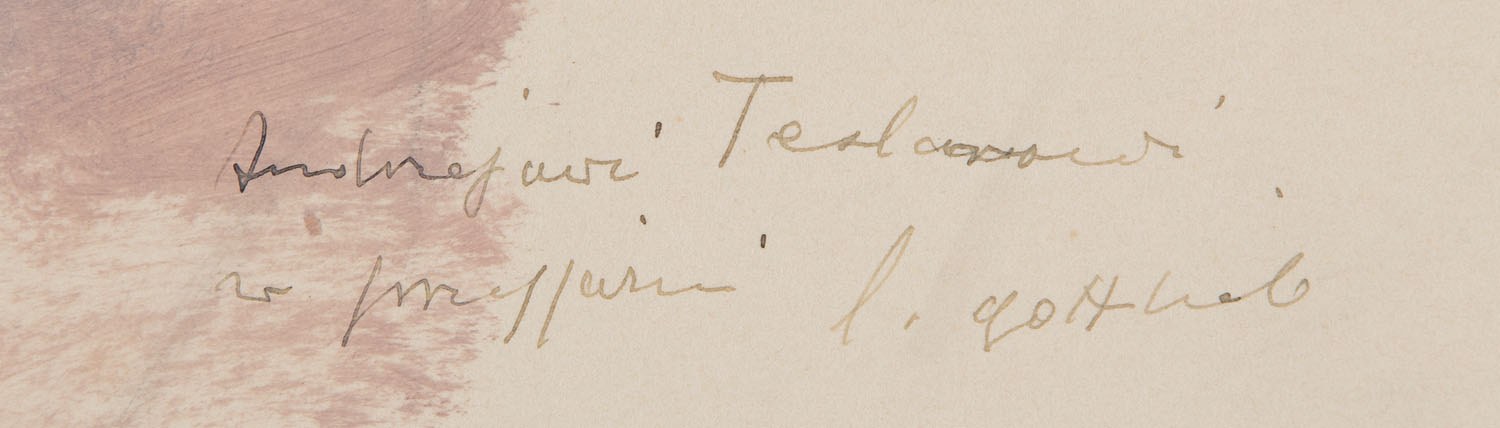 Andrzejowi Teslarowi
w przyjaźni l. gottlieb